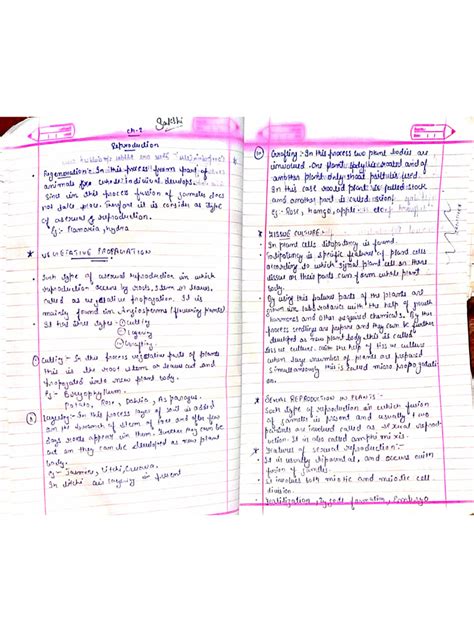 Sakshi
Ch-2
Reproduction
Regeneration :- In this process from part of
animals new individual develops.
Since in this process fusion of gametes does
not take place. Therefore it is consider as type
of asexual reproduction.
Eg:- Planaria, hydra
* VEGETATIVE PROPAGATION
Such type of asexual reproduction in which
reproduction occurs by roots, stem or leaves
called as vegetative propagation. It is
mainly found in Angiosperms (flowering plants)
It has three types - Cutting
Layering
Grafting
Cutting - In this process vegetative parts of plants
this is the root stem or leaves cut and
propagated into new plant body.
Eg:- Bryophyllum
Potato, Rose, Dahlia, Asparagus.
Layering:- In this process layer of soil is added
on the branch of stem of root and after few
days roots appear in them. Further they can be
cut an they can be developed as new plant
body.
Eg:- Jasmine, Litchi, Guava,
In litchi air layering is present
Grafting :- In this process two plant bodies are
involved. One plant body is rooted and of
another plant only that part is used.
In this case rooted plant is called stock
and another part is called scion
Eg:- Rose, Mango, apple
* TISSUE CULTURE
In plant cells totipotency is found.
Totipotency is specific feature of plant cells
according to which single plant cell or tissue
or their parts can form whole plant
body.
By using this features parts of the plants are
grown in lab with the help of growth
hormones and other required chemicals. By this
process seedlings are prepare and they can be further
developed as new plant body, this is called
tissue culture. With the help of tissue culture
when large number of plants are prepared
simultaneously this is called micro propagati-
on.
* SEXUAL REPRODUCTION IN PLANTS :-
Such type of reproduction in which fusion
of gametes is present and usually, two
parents are involved called as sexual reprod-
uction. It is also called amphimixis.
* Features of sexual reproduction:-
It is usually biparental, and occurs with
fusion of gametes.
It involves both mitotic and meiotic cell
division.
Fertilization, Zygote formation, Embryo